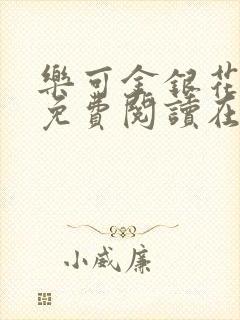 樂可金銀花
免費閱讀在
小威廉